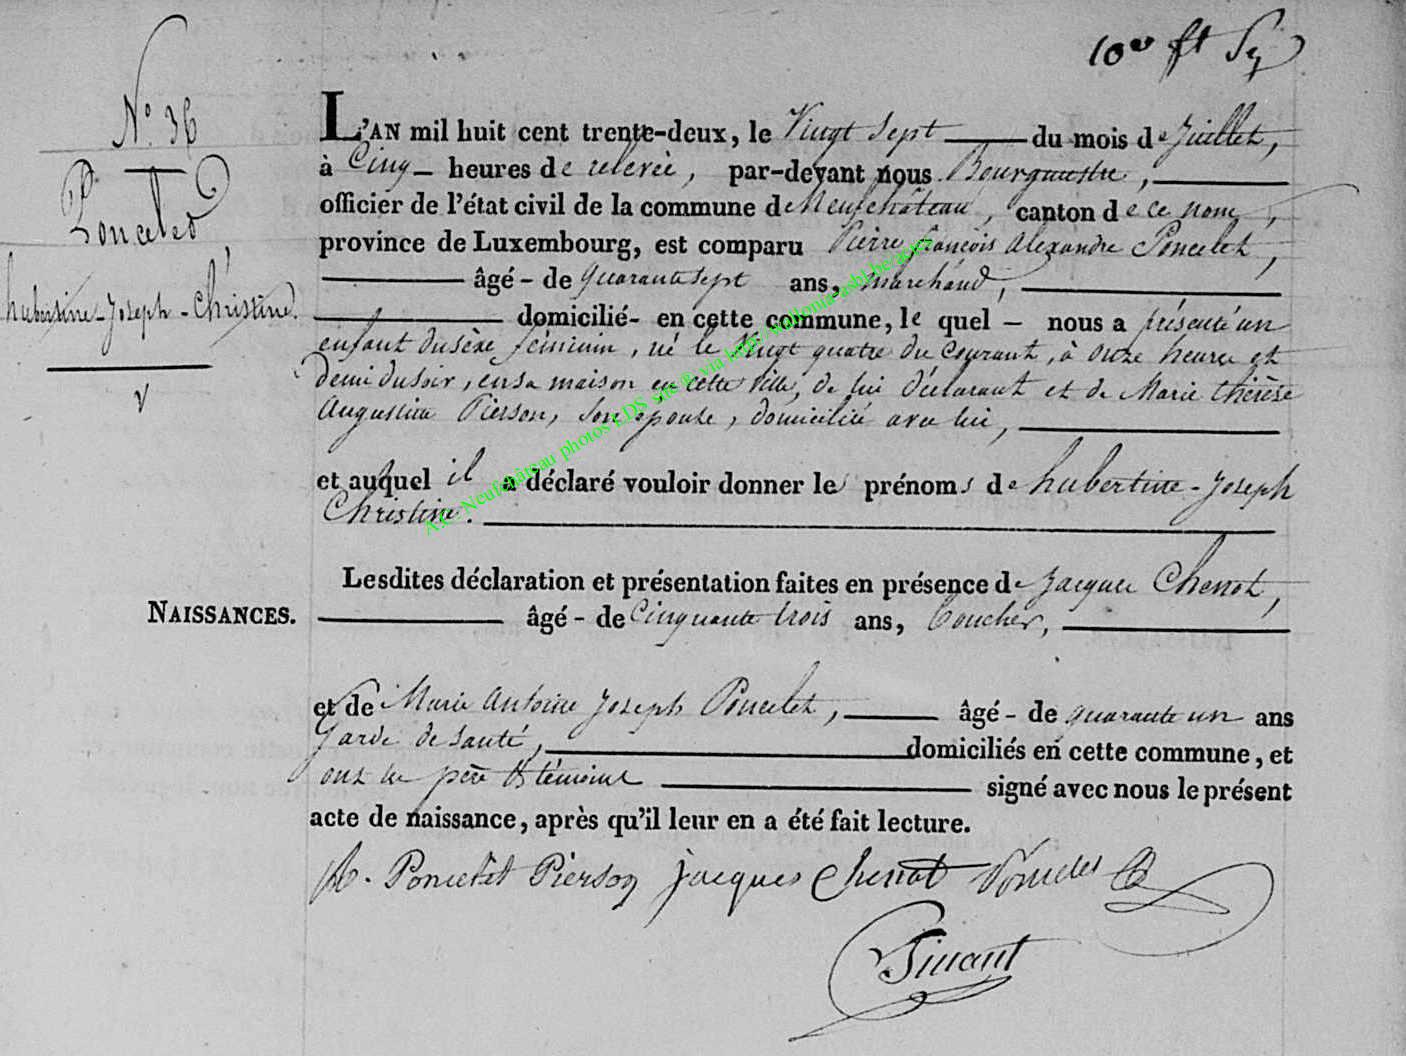 10
N.o 36
Poncelet,
hubertine-Joseph-Christine.
L'AN mil huit cent trente-deux, le Vingt Sept du mois de Juillet,
à Cinq heures de relevée, par-devant nous Bourgmestre,
officier de l'état civil de la commune de Neufchâteau, canton de ce nom,
province de Luxembourg, est comparu Pierre françois alexandre Poncelet,
âgé - de quarante sept ans, marchand,
domicilié - en cette commune, le quel - nous a présenté un
enfant du sèxe féminin, né le Vingt quatre du Courant, à onze heures et
demi du soir, en sa maison en cette ville, de lui déclarant et de Marie thérèse
augustine Pierson, son épouse, domiciliée avec lui,
et auquel il a déclaré vouloir donner les prénoms de hubertine-Joseph
Christine.
Lesdites déclaration et présentation faites en présence de Jacques Chenot,
NAISSANCES.
âgé - de Cinquante trois ans, boucher,
et de Marie antoine Joseph Poncelet, âgé - de quarante un ans
garde de santé, domiciliés en cette commune, et
ont les père & témoins signé avec nous le présent
acte de naissance, après qu'il leur en a été fait lecture.
Poncelet Pierson jacques chenot Poncelet
Dinant
A.C. Neufchâteau photos LDS site & via http://wallonia-asbl.be/actes